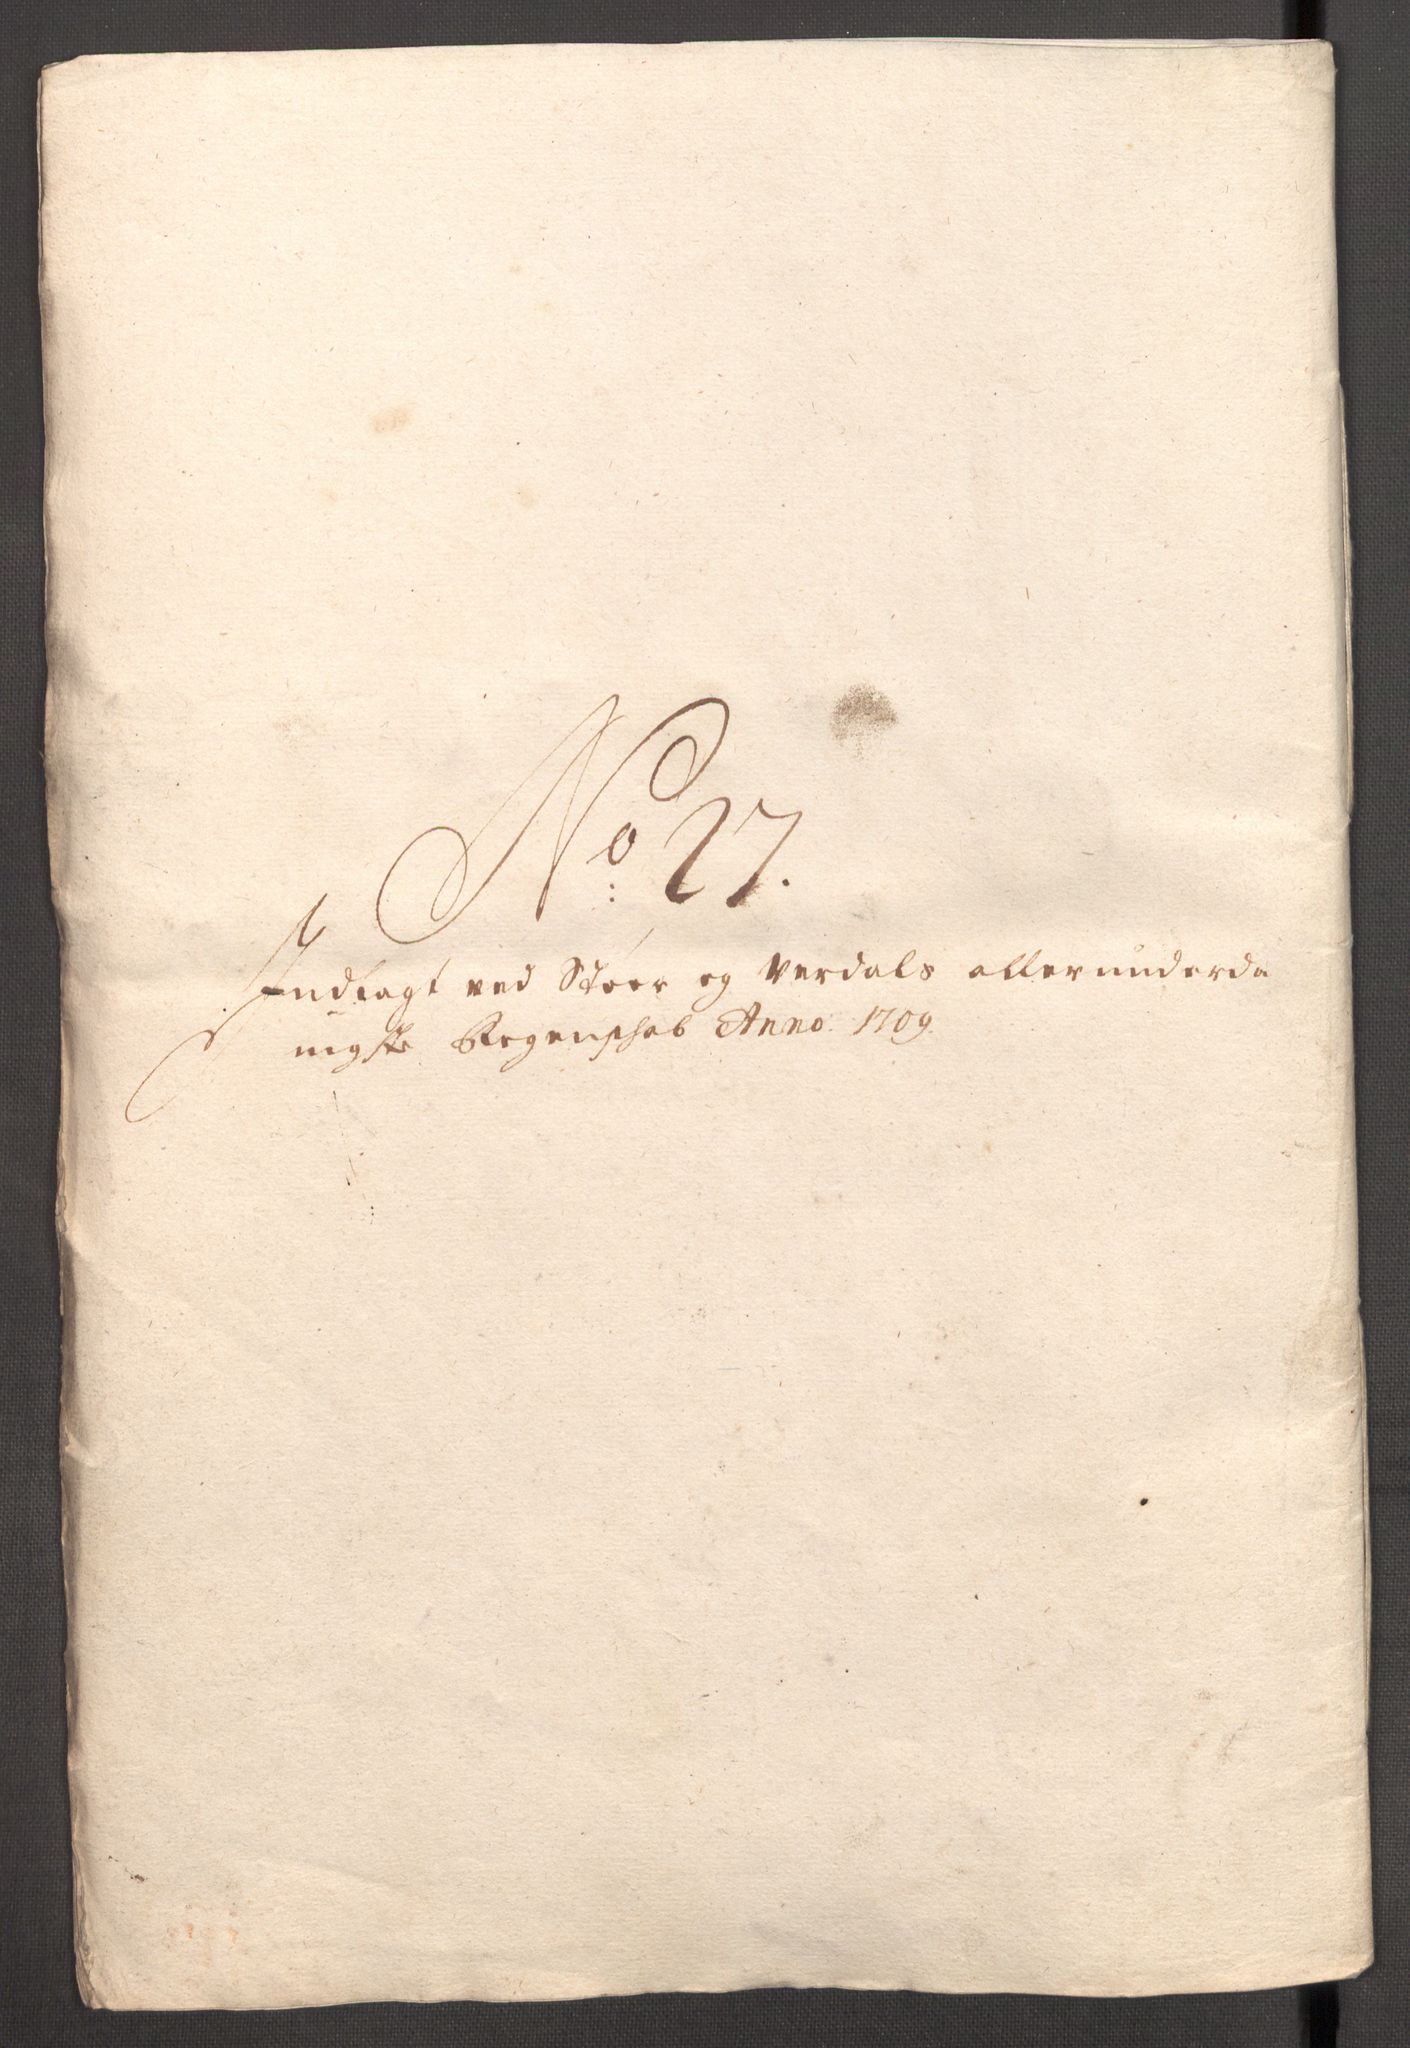 No: 27.
Indlagt ved Støer og Verdals allerunderda
nigste Regenskab Anno 1709